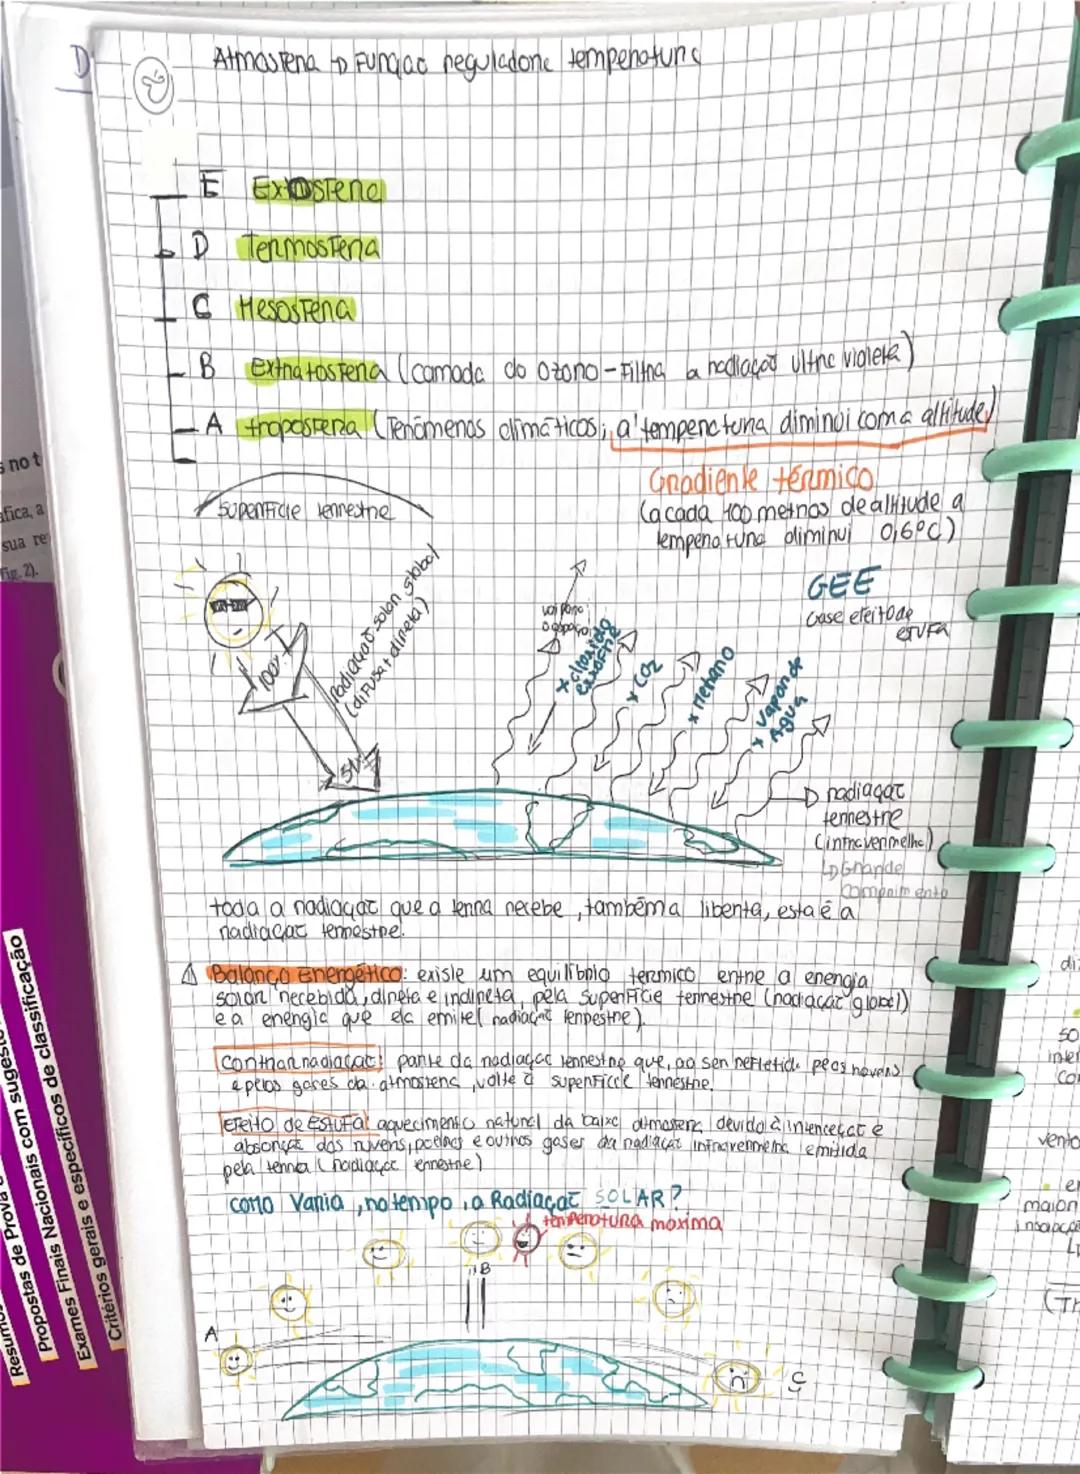 D
Atmosfera → Função reguladora temperatura
E Exosfera
D Termosfera
C Mesosfera
B Extratosfera (camada do ozono - Filtra a radiação ultra violeta)
A troposfera (Fenómenos climáticos; a temperatura diminui com a altitude)
Gradiente térmico
(a cada 100 metros de altitude a
temperatura diminui 0,6°C)
Superfície terrestre
GEE
Gase efeito de
estufa
100%
Radiação solar global
(difusa + direta)
vai para
o espaço
x CO2
x Metano
x Vapor de
Água
radiação
terrestre
(infravermelha)
↳ Grande
comprimento
toda a radiação que a terra recebe, também a liberta, esta é a
radiação terrestre.
Balanço Energético: existe um equilíbrio térmico entre a energia
solar recebida, direta e indireta, pela superfície terrestre (radiação global)
e a energia que ela emite (radiação terrestre).
Contrarradiação: parte da radiação terrestre que, ao ser refletida pelas nuvens
e pelos gases da atmosfera, volta à superfície terrestre.
Efeito de Estufa: aquecimento natural da baixa atmosfera devido à interceção e
absorção das nuvens, poeiras e outros gases da radiação infravermelha emitida
pela terra (radiação terrestre)
como Varia, no tempo, a Radiação SOLAR?
temperatura máxima
B
A
C
s no t
áfica, a
sua re
fig. 2).
Propostas de Prova com sugest
Exames Finais Nacionais com
Critérios gerais e específicos de classificação